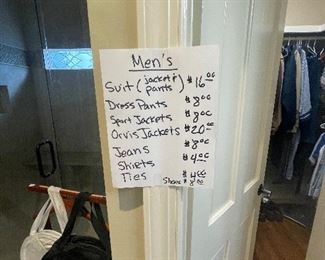 Men's
Suit (jacket & pants) $16.00
Dress Pants $8.00
Sport Jackets $8.00
Orvis Jackets $20.00
Jeans $8.00
Shirts $4.00
Ties $4.00
Shoes $8.00